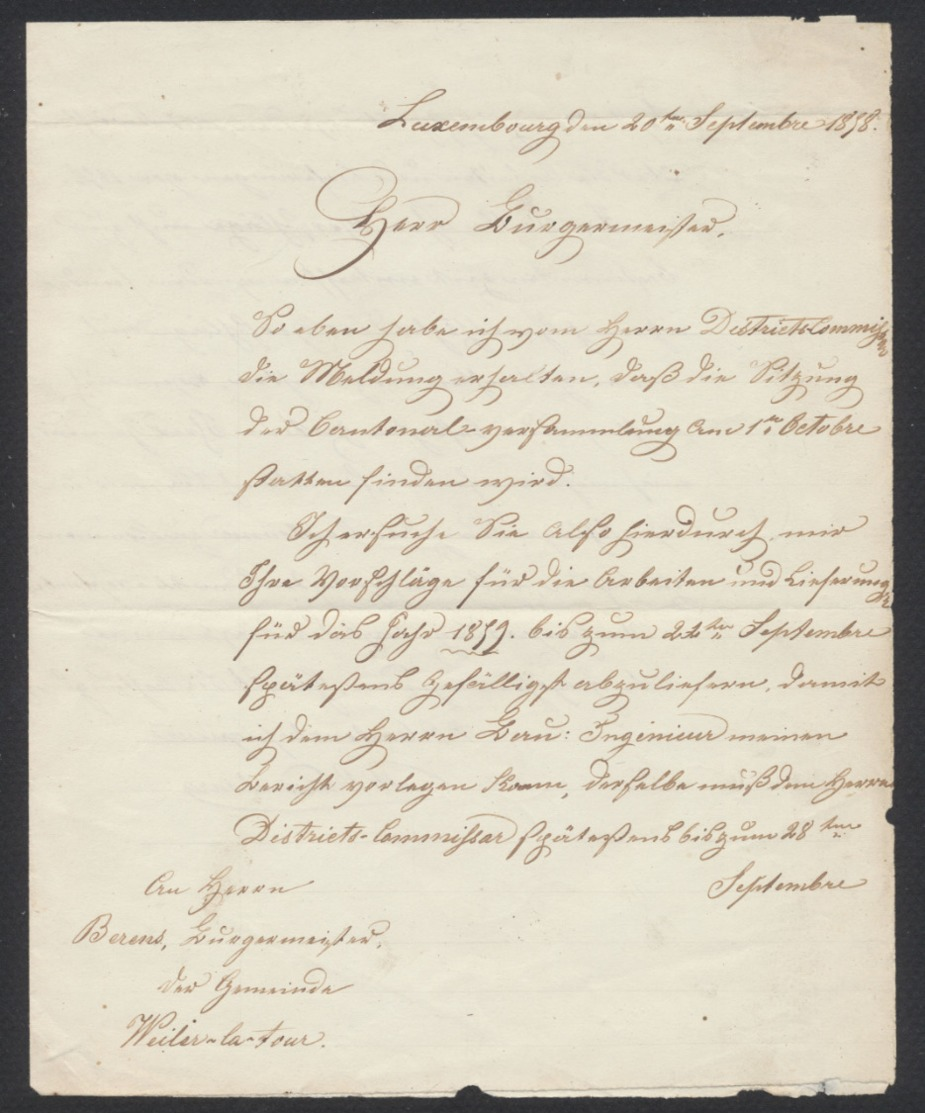 Luxembourg den 20ten Septembre 1858.
Herr Burgermeister.
So eben habe ich vom Herrn Districts Commissar
die Meldung erhalten, daß die Sitzung
der Cantonal-versammlung am 1en Octobre
statten finden wird.
Ich ersuche Sie also hierdurch, mir
Ihre Vorschläge für die Arbeiten und Lieferungen
für das Jahr 1859. bis zum 22ten Septembre
spätestens gefälligst abzuliefern, damit
ich dem Herrn Bau: Ingenieur meinen
Bericht vorlegen kann, derselbe muß dem Herrn
Districts-Commissar spätestens bis zum 28ten
Septembre
An Herrn
Berens, Burgermeister.
der Gemeinde
Weiler-la-tour.